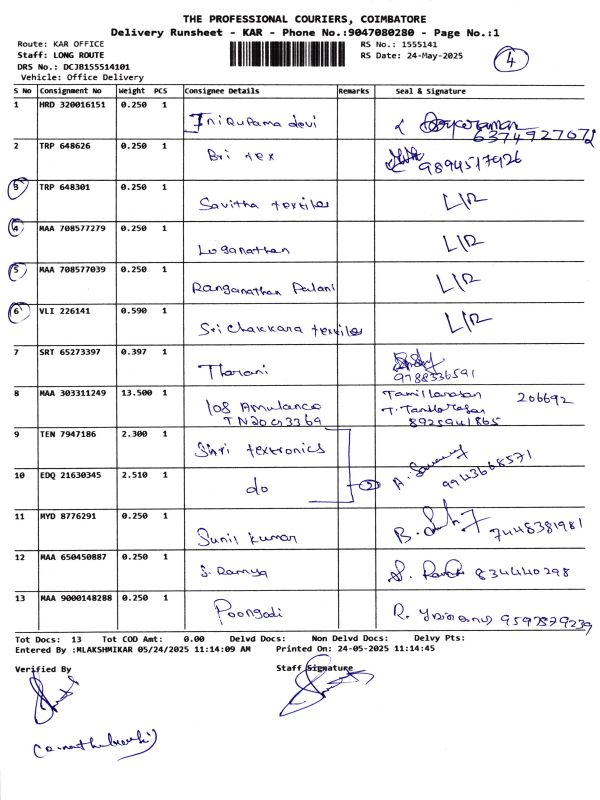 THE PROFESSIONAL COURIERS, COIMBATORE
Delivery Runsheet - KAR - Phone No.:9047080280 - Page No.:1
Route: KAR OFFICE RS No.: 1555141
Staff: LONG ROUTE RS Date: 24-May-2025 4
DRS No.: DCJB155514101
Vehicle: Office Delivery
S No Consignment No Weight PCS Consignee Details Remarks Seal & Signature
1 HRD 320016151 0.250 1 Inirupama devi
6374927072
2 TRP 648626 0.250 1 Bri tex 9894517926
3 TRP 648301 0.250 1 Savitha textiles L/R
4 MAA 708577279 0.250 1 Loganathan L/R
5 MAA 708577039 0.250 1 Ranganathan Palani L/R
6 VLI 226141 0.590 1 Sri Chakkara textiles L/R
7 SRT 65273397 0.397 1 Tharani
9788536591
8 MAA 303311249 13.500 1 108 Ambulance Tamilarasan 206692
TN20G3369 T. Tamilarasan
8925941865
9 TEN 7947186 2.300 1 Sihri textronics
10 EDQ 21630345 2.510 1 do 2 A. 9943668571
11 MYD 8776291 0.250 1 Sunil kumar B. 7448381981
12 MAA 650450887 0.250 1 S. Ramya S. 834440298
13 MAA 9000148288 0.250 1 Poongodi R. 9597879239
Tot Docs: 13 Tot COD Amt: 0.00 Delvd Docs: Non Delvd Docs: Delvy Pts:
Entered By :MLAKSHMIKAR 05/24/2025 11:14:09 AM Printed On: 24-05-2025 11:14:45
Verified By Staff Signature